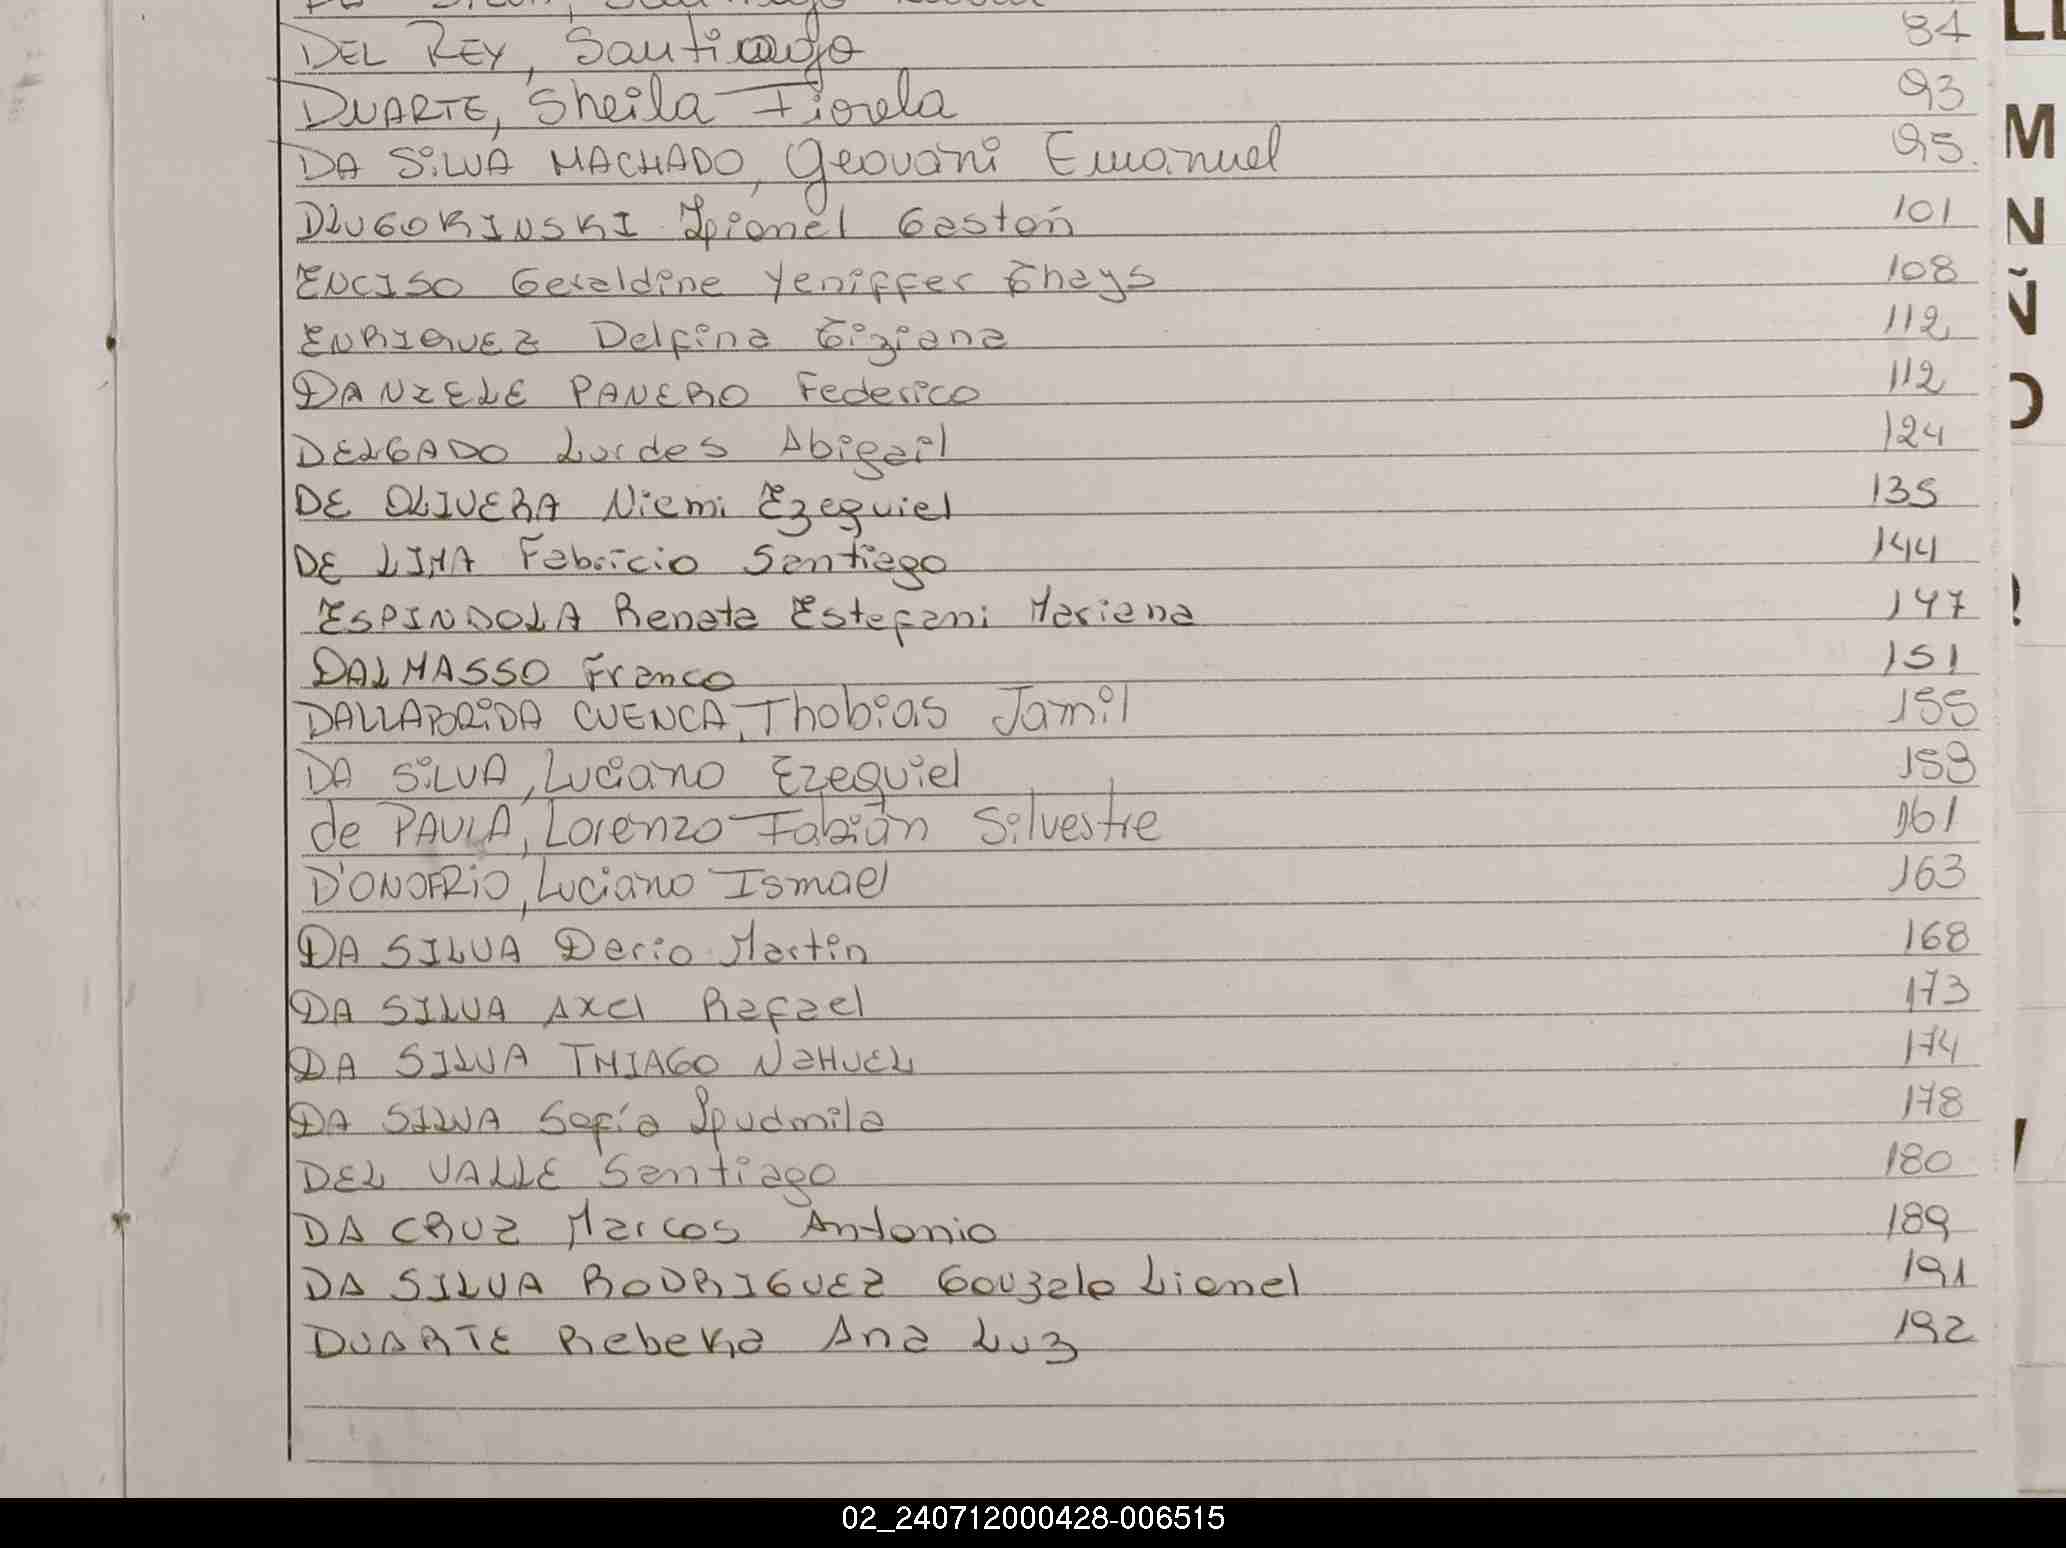 DEL REY, Santiago 84
DUARTE, Sheila Fiorela 93
DA SiLVA MACHADO, Geovani Emanuel 95.
DLUGOKINSKI Lionel Gastón 101
ENCISO Geraldine Yeniffer Thays 108
ENRIQUEZ Delfina Tiziana 112
DANZELE PANERO Federico 112
DELGADO Lurdes Abigail 124
DE OLIVERA Niemi Ezequiel 135
DE LIMA Fabricio Santiago 144
ESPINDOLA Renata Estefani Mariana 147
DALMASSO Franco 151
DALLAPORiDA CUENCA, Thobias Jamil 155
DA SiLVA, Luciano Ezequiel 159
de PAULA, Lorenzo Fabián Silvestre 161
D'ONOFRiO, Luciano Ismael 163
DA SILVA Dario Martin 168
DA SILVA Axel Rafael 173
DA SILVA THIAGO NaHUEL 174
DA SILVA Sofía Ludmila 178
DEL VALLE Santiago 180
DA CRUZ Marcos Antonio 189
DA SILVA RODRIGUEZ Gonzalo Lionel 191
DUARTE Rebeka Ana Luz 192
M
N
Ñ
O
02_240712000428-006515